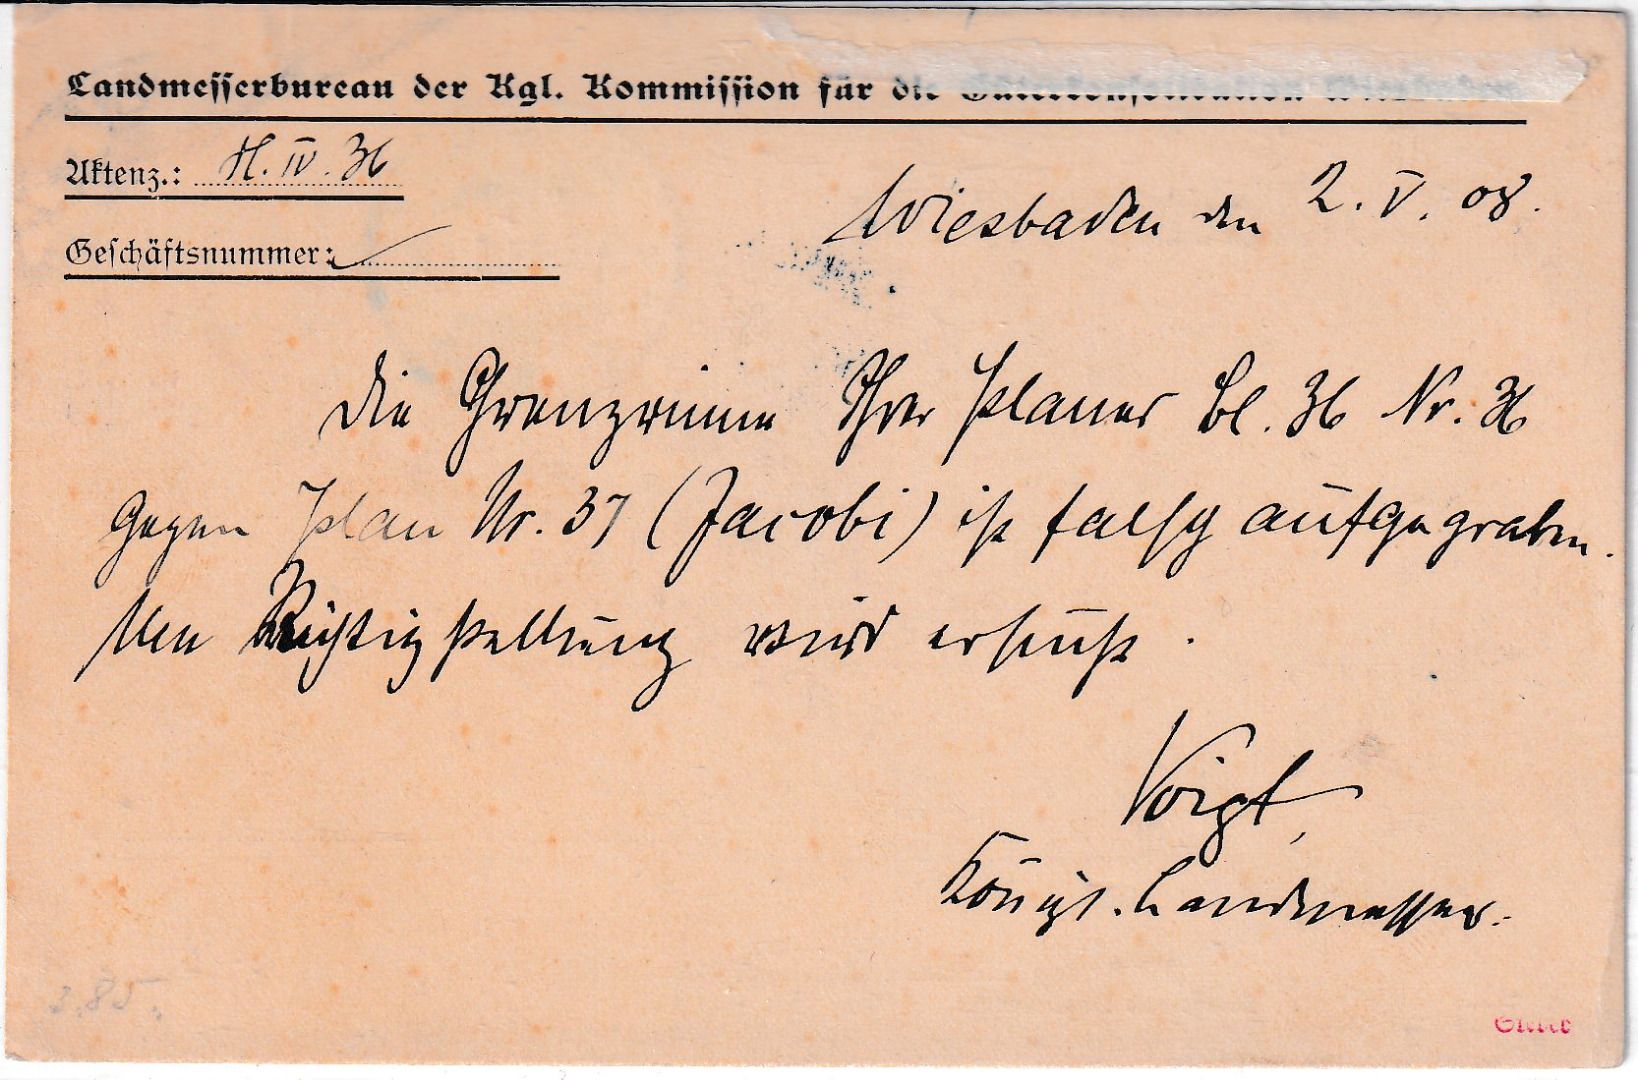 Landmesserbureau der Kgl. Kommission für die
Aktenz.: H. IV. 36
Wiesbaden den 2. V. 08.
Geschäftsnummer:
Die Grenzrinne Ihres Planes Bl. 36 Nr. 36
gegen Plan Nr. 37 (Jacobi) ist falsch aufgegraben.
Um Richtigstellung wird ersucht.
Voigt,
Königl. Landmesser.
3.85.